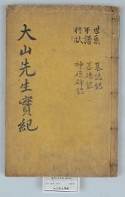 大山先生實紀
世系
年譜
行狀
墓誌銘
墓碣銘
神道碑銘